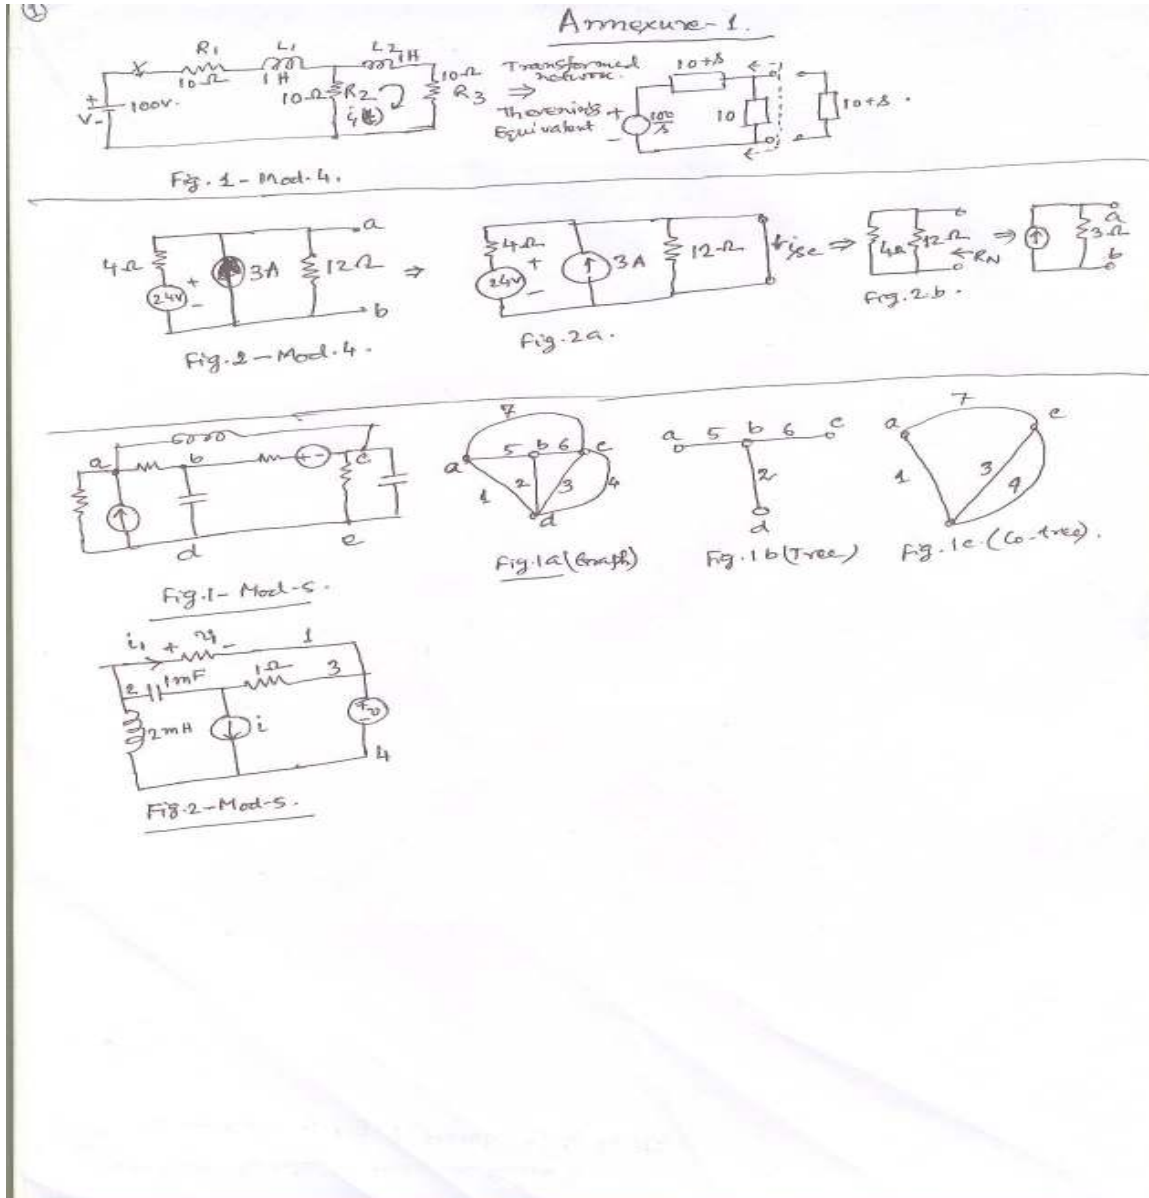 ①
Annexure-1.
R1 L1 L2 1H
10Ω 1H 10Ω R2 10Ω R3
+ 100V. V-
i(t)
⇒ Transformed network.
Thevenin's Equivalent
+ 100/s -
10+s 10 10+s.
Fig. 1 - Mod. 4.
4Ω 24V + - 3A 12Ω a b ⇒
Fig. 2 - Mod. 4.
4Ω 24V + - 3A 12Ω isc ⇒
Fig. 2a.
4Ω 12Ω ←RN ⇒
Fig. 2.b.
a 3Ω b
a b c d e + -
Fig.1- Mod-5.
7
a 5 b 6 c
1 2 3 4
d
Fig.1a (Graph)
a 5 b 6 c
2
d
Fig.1b (Tree)
7
a c
1 3 4
Fig.1c. (Co-tree).
i1 + v1 - 1
2 1mF 1Ω 3
2mH i + v -
4
Fig.2-Mod-5.